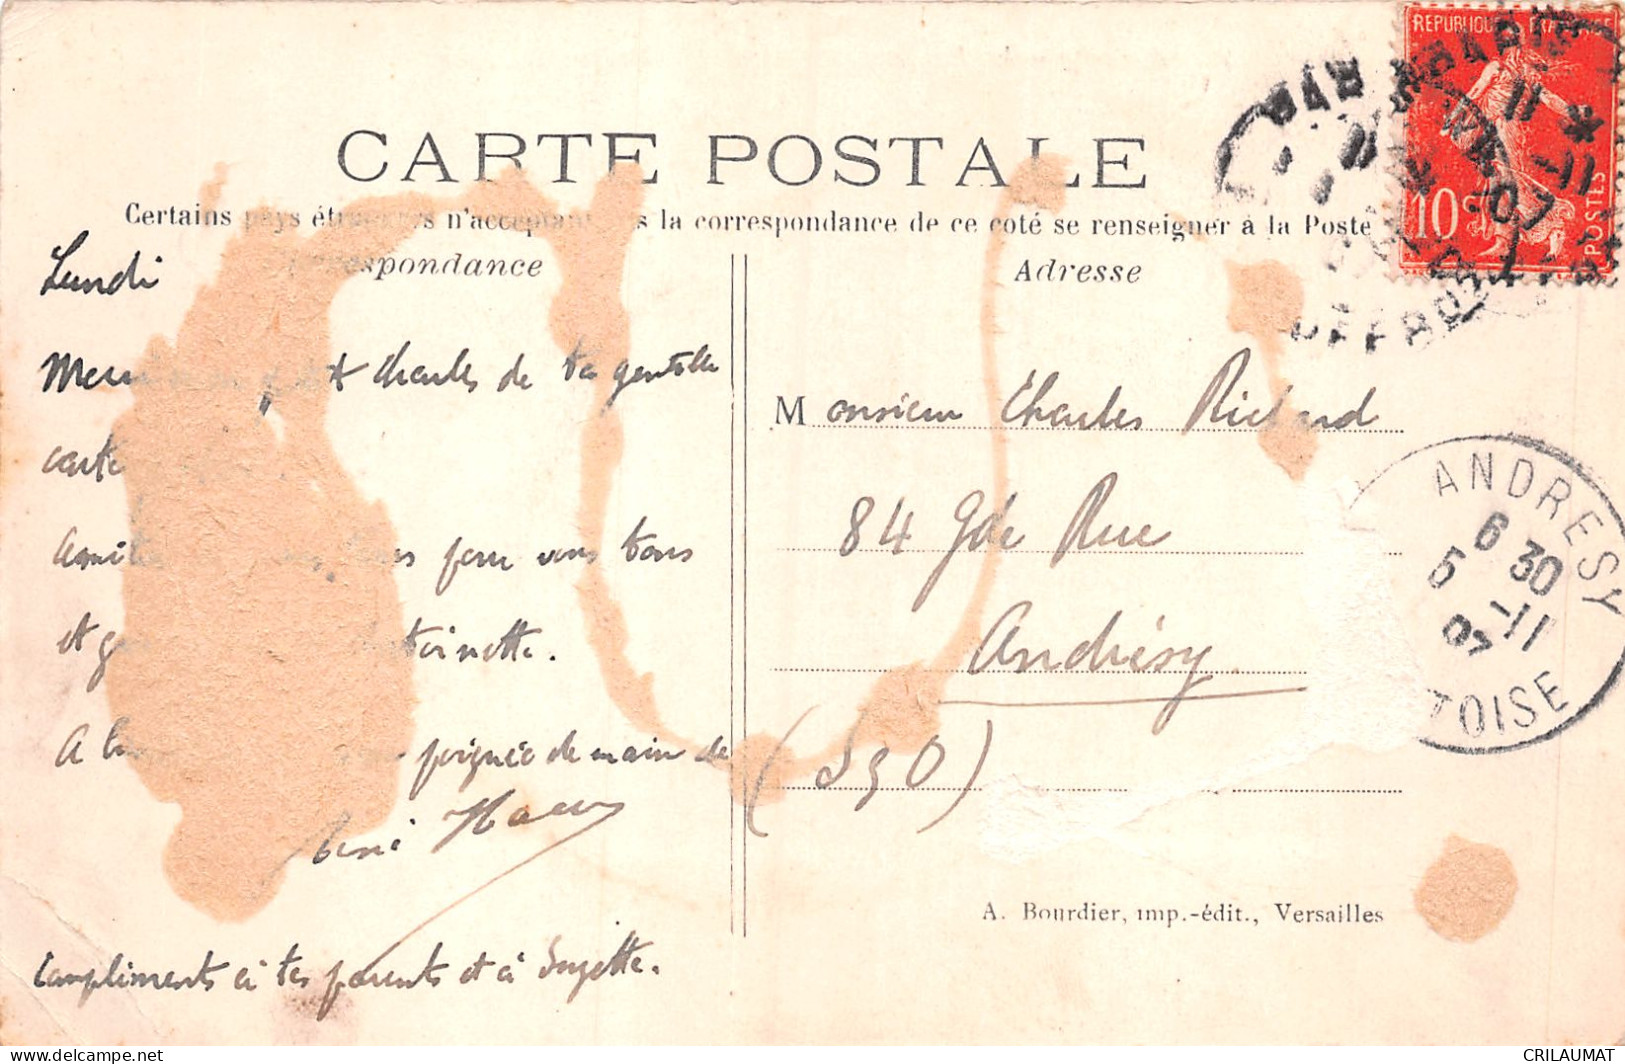 CARTE POSTALE
Certains pays étrangers n'acceptant pas la correspondance de ce coté se renseigner à la Poste
Correspondance
Adresse
Lundi
Merci mon petit Charles de ta gentille
carte
Amitiés pour vous tous
et toinette.
A poignée de main de
René
Compliments à tes parents et à Suzette.
Monsieur Charles Richard
84 Gde Rue
Andrésy
(S & O)
A. Bourdier, imp.-édit., Versailles
REPUBLIQUE FRANÇAISE
10c
POSTES
PARIS
11
-11
07
ANDRESY
6 30
5 -11
07
TOISE
CRILAUMAT